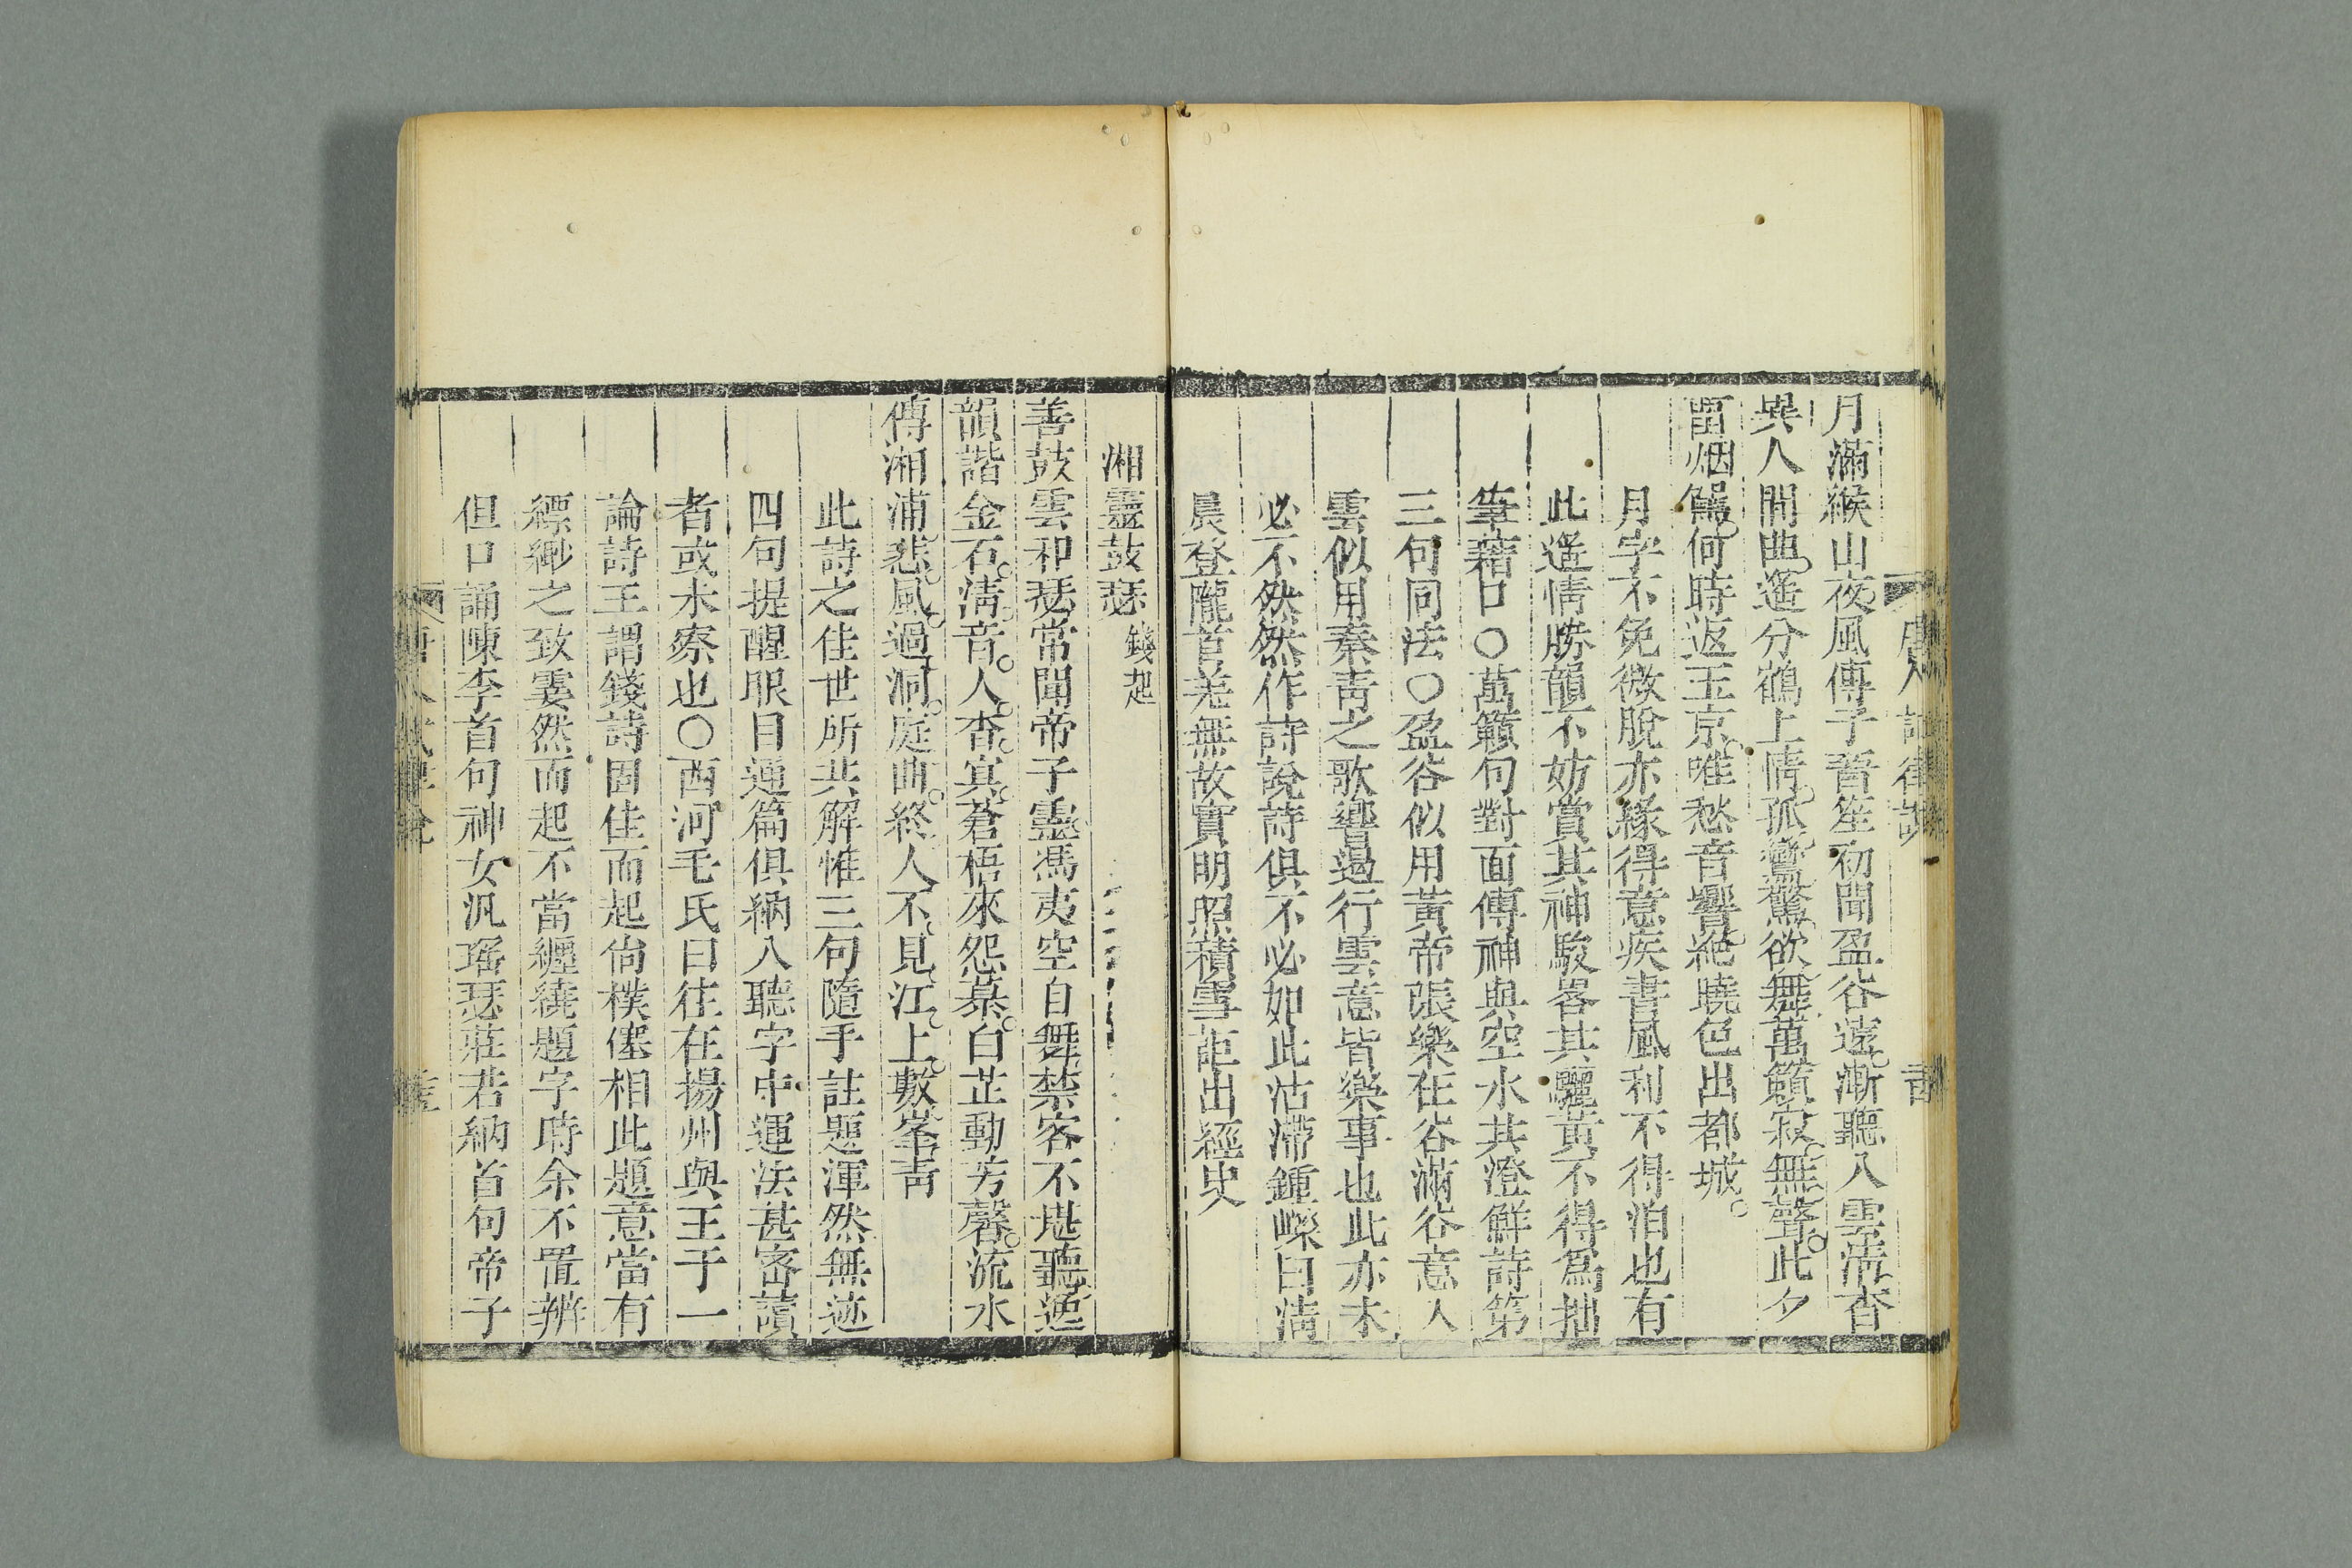 月滿緱山夜風傳子晉笙初聞盈谷遠漸聽入雲淸杳
異人間曲遙分鶴上情孤鸞驚欲舞萬籟寂無聲此夕
留烟駕何時返玉京唯愁音響絶曉色出都城
月字不免微脫亦緣得意疾書風利不得泊也有
此遙情勝韻不妨賞其神駿畧其驪黃不得爲拙
筆藉口○萬籟句對面傳神與空水共澄鮮詩第
三句同法○盈谷似用黃帝張樂在谷滿谷意入
雲似用秦靑之歌響遏行雲意皆樂事也此亦未
必不然然作詩說詩俱不必如此沾滯鍾嶸曰淸
晨登隴首羌無故實明照積雪詎出經史
湘靈鼓瑟 錢起
善鼓雲和瑟常聞帝子靈馮夷空自舞楚客不堪聽逸
韻諧金石淸音入杳冥蒼梧來怨慕白芷動芳馨流水
傳湘浦悲風過洞庭曲終人不見江上數峯靑
此詩之佳世所共解惟三句隨手註題渾然無迹
四句提醒眼目通篇俱納入聽字中運法甚密讀
者或未察也○西河毛氏曰往在揚州與王于一
論詩王謂錢詩固佳而起尙樸僿相此題意當有
縹緲之致霎然而起不當纏繞題字時余不置辨
但口誦陳李首句神女汎瑤瑟莊若納首句帝子